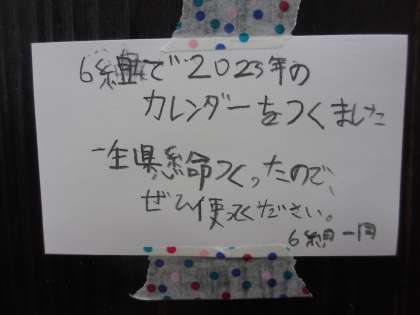 6組で2023年の
カレンダーをつくました
一生県命つくったので、
ぜひ使てください。
6組一同